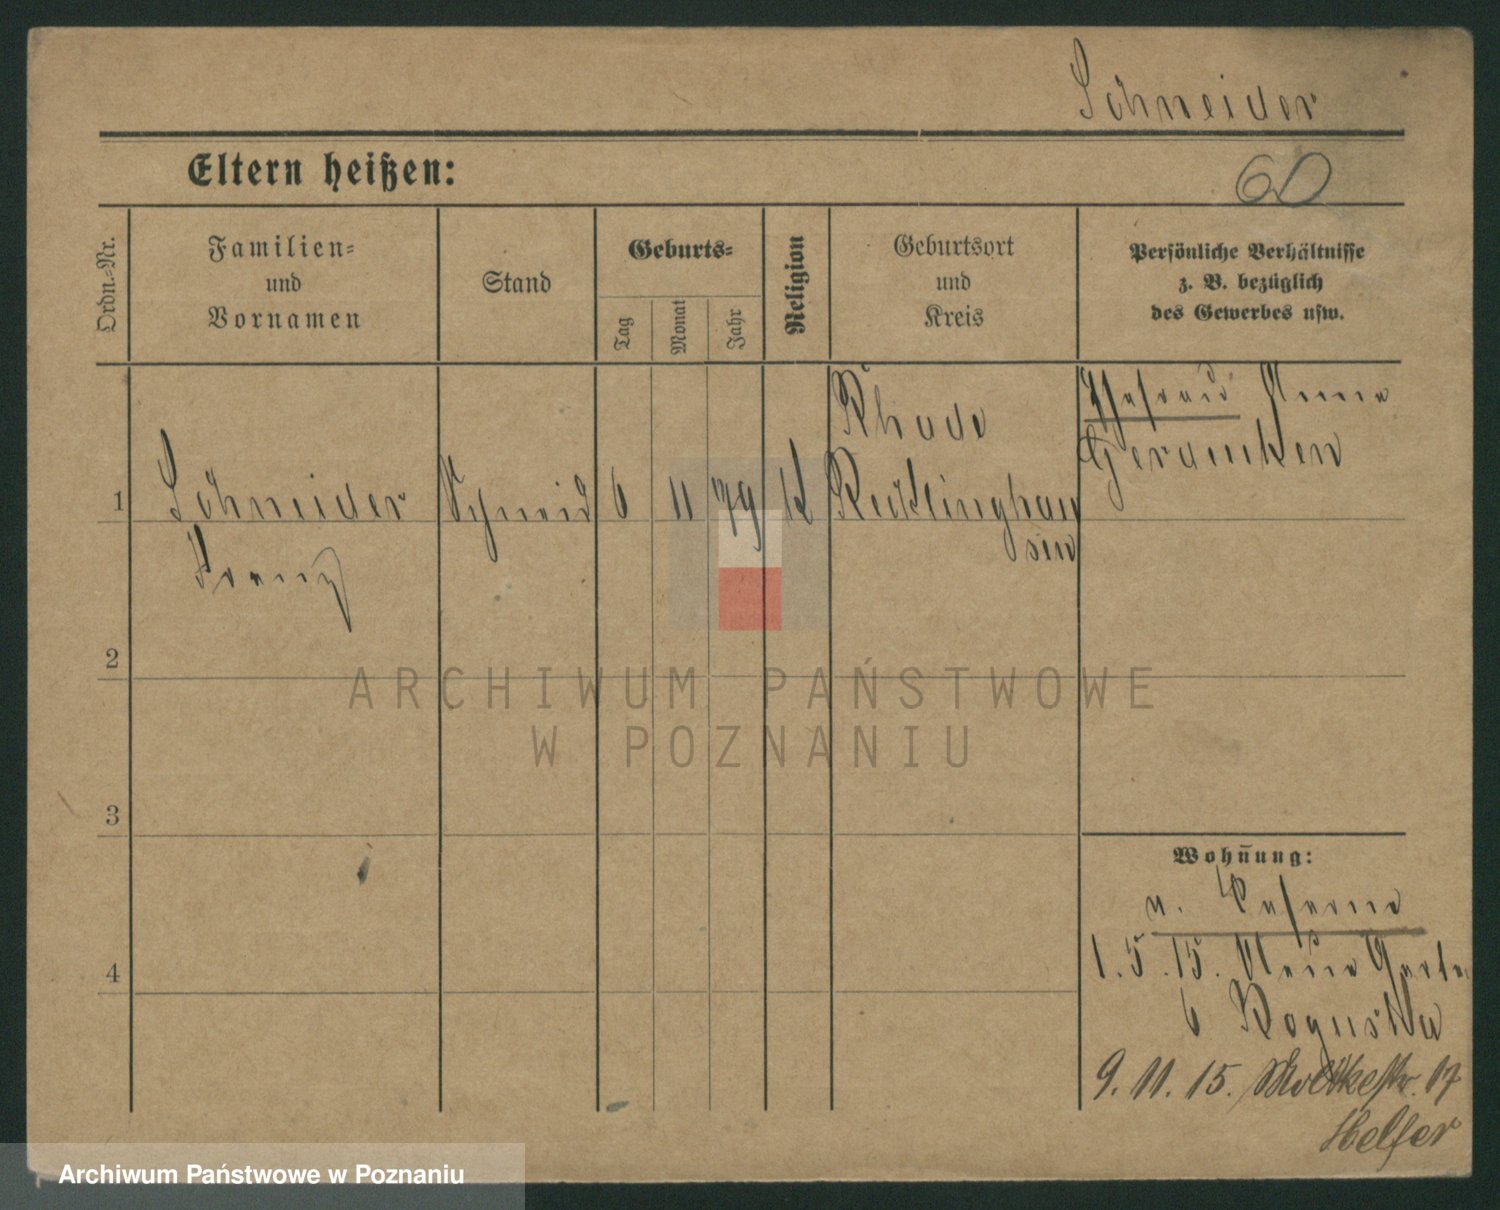 Schneider
Eltern heißen:
60
Ordn.-Nr.
Familien-
und
Vornamen
Stand
Geburts-
Tag
Monat
Jahr
Religion
Geburtsort
und
Kreis
Persönliche Verhältnisse
z. B. bezüglich
des Gewerbes usw.
1
Schneider
Franz
Schmied
6
11
79
K
Rhade
Recklinghau
sen
Ehefrau Anna
2
3
4
Wohnung:
n. Caserne
1. 5. 15. Neue Garten
6
9. 11. 15. Moltkestr. 17
Helfer
ARCHIWUM PAŃSTWOWE
W POZNANIU
Archiwum Państwowe w Poznaniu